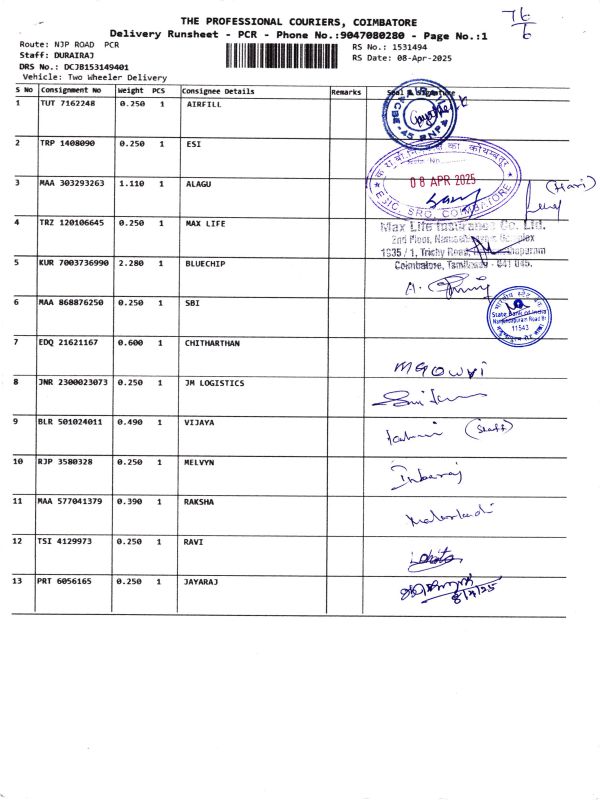 THE PROFESSIONAL COURIERS, COIMBATORE
Delivery Runsheet - PCR - Phone No.:9047080280 - Page No.:1
Route: NJP ROAD PCR
RS No.: 1531494
Staff: DURAIRAJ
RS Date: 08-Apr-2025
DRS No.: DCJB153149401
Vehicle: Two Wheeler Delivery
S No Consignment No Weight PCS Consignee Details Remarks Seal & Signature
1 TUT 7162248 0.250 1 AIRFILL
2 TRP 1408090 0.250 1 ESI
08 APR 2025
ESIC, SRO, COIMBATORE
3 MAA 303293263 1.110 1 ALAGU
(Hari)
4 TRZ 120106645 0.250 1 MAX LIFE
Max Life Insurance Co. Ltd.
2nd Floor,
1635 / 1, Trichy Road,
Coimbatore, Tamilnadu - 641 045.
5 KUR 7003736990 2.280 1 BLUECHIP
6 MAA 868876250 0.250 1 SBI
State Bank of India
11543
7 EDQ 21621167 0.600 1 CHITHARTHAN
MGOWRI
8 JNR 2300023073 0.250 1 JM LOGISTICS
9 BLR 501024011 0.490 1 VIJAYA
(Staff)
10 RJP 3580328 0.250 1 MELVYN
Inbaraj
11 MAA 577041379 0.390 1 RAKSHA
12 TSI 4129973 0.250 1 RAVI
13 PRT 6056165 0.250 1 JAYARAJ
8/4/25